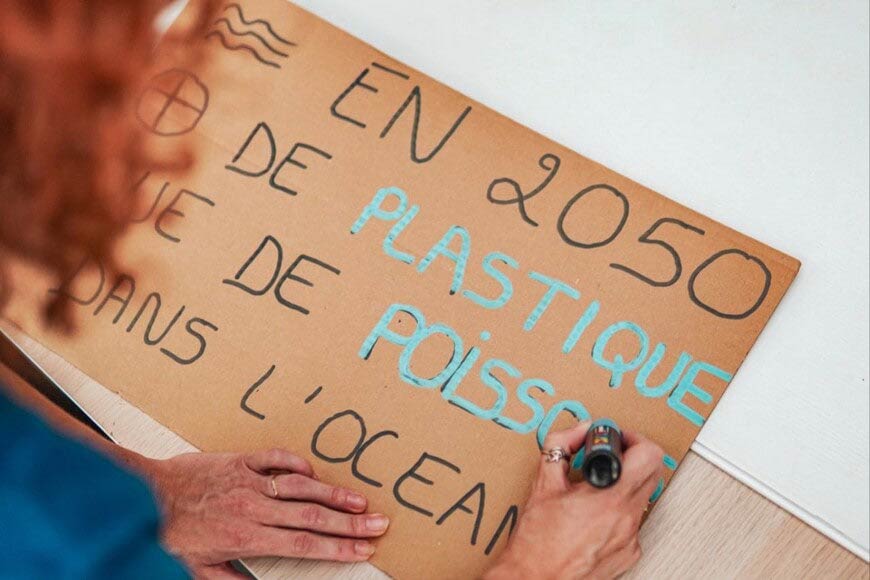 EN 2050
⊕ DE PLASTIQUE
UE DE POISSO
DANS L'OCEAN